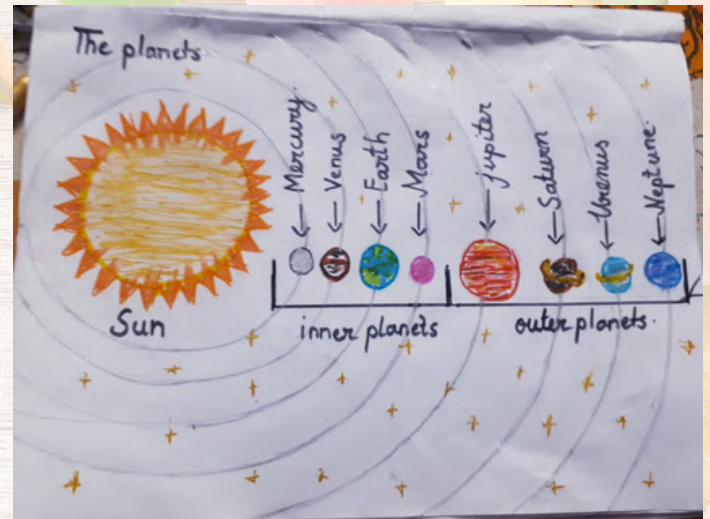 The planets
Mercury.
Venus
Earth
Mars
Jupiter
Saturn
Urenus
Neptune.
Sun
inner planets
outer planets.